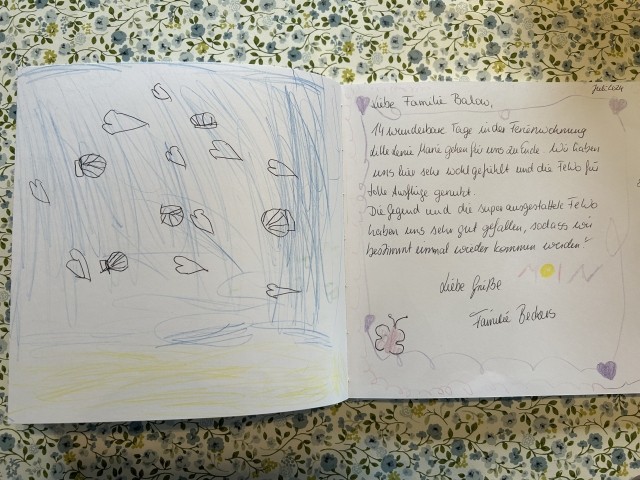 Juli 2024
Liebe Familie Balow,
14 wunderbare Tage in der Ferienwohnung
Lille Lenie Marie gehen für uns zu Ende. Wir haben
uns hier sehr wohlgefühlt und die FeWo für
tolle Ausflüge genutzt.
Die Gegend und die super ausgestattete FeWo
haben uns sehr gut gefallen, sodass wir
bestimmt einmal wieder kommen werden!
MOIN
Liebe Grüße
Familie